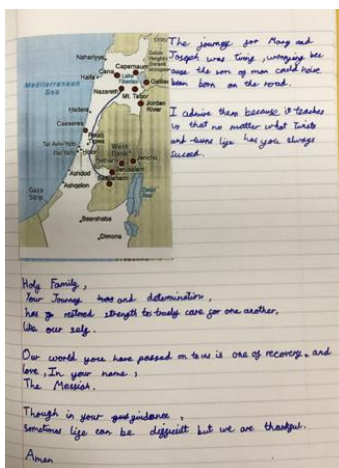 SYRIA
Golan
Heights
Nahariyya
Capernaum
Cana
Lake
Tiberias
Haifa
Galilee
Mediterranean
Sea
Nazareth
Mt. Tabor
Jordan
River
Hadera
Caesarea
West
Bank
Jericho
Jerusalem
Bethlehem
Ashdod
Ashqelon
Gaza
Strip
Dead
Sea
Beersheba
Dimona
The journey for Mary and
Joseph was tiring, worrying bec
ause the son of man could have
been born on the road.
I admire them because it teaches
us that no matter what twists
and turns life has you always
succeed.
Holy Family,
Your Journey and determination,
has restored strength to truely care for one another.
like our self.
Our world you have passed on to us is one of recovery and
love, In your name,
The Messiah.
Though in your guidance,
sometimes life can be difficult but we are thankful.
Amen